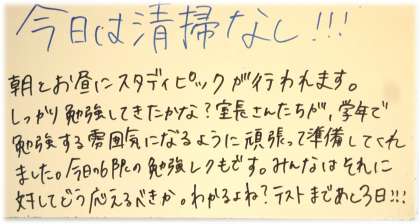 今日は清掃なし!!!
朝とお昼にスタディピックが行われます。
しっかり勉強してきたかな?室長さんたちが、学年で
勉強する雰囲気になるように頑張って準備してくれ
ました。今日の6限の勉強レクもです。みんなはそれに
対してどう応えるべきか。わかるよね?テストまであと3日!!!